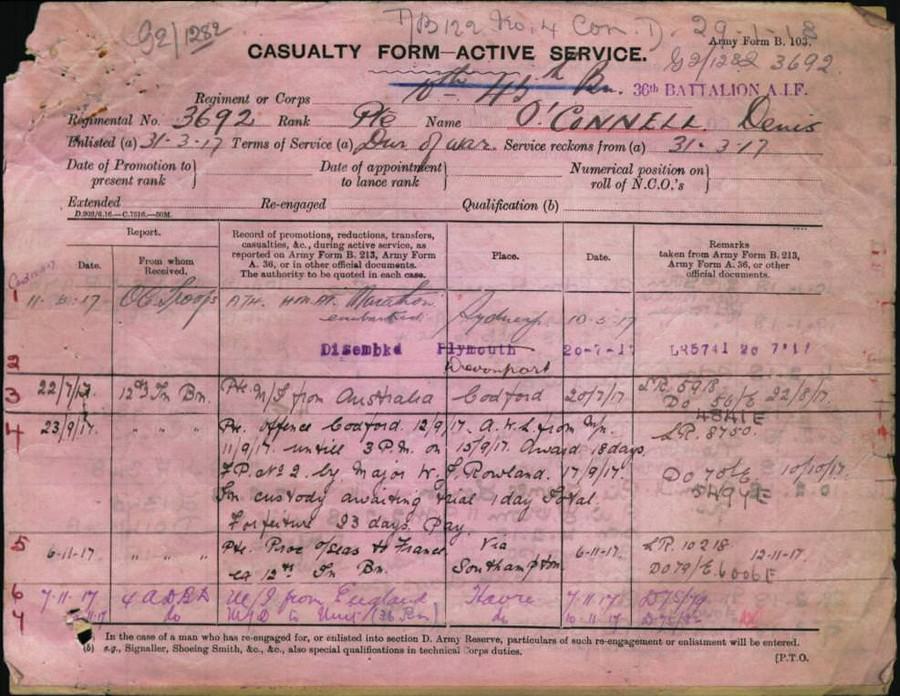 G2/1282
29-1-18
CASUALTY FORM—ACTIVE SERVICE.
Army Form B. 103.
G2/1282 3692
Regiment or Corps 45th Bn. 36th BATTALION A.I.F.
Regimental No. 3692 Rank Pte Name O'CONNELL Denis
Enlisted (a) 31-3-17 Terms of Service (a) Dur of war. Service reckons from (a) 31-3-17
Date of Promotion to present rank
Date of appointment to lance rank
Numerical position on roll of N.C.O.'s
Extended Re-engaged Qualification (b)
Report.
Date.
From whom Received.
Record of promotions, reductions, transfers, casualties, &c., during active service, as reported on Army Form B. 213, Army Form A. 36, or in other official documents. The authority to be quoted in each case.
Place.
Date.
Remarks taken from Army Form B. 213, Army Form A. 36, or other official documents.
1
11-5-17 OC Troops Marathon
embarked Sydney 10-5-17
2
Disembkd Plymouth 20-7-17
Devonport
3 22/7/17 12th Tn Bn. Pte. M/I from Australia Codford 20/7/17 LR. 5918
Do 56/E 22/8/17.
4841E
4 23/9/17. " " " Pte. Offence Codford. 12/9/17. A.W.L from
11/9/17. untill 3 P.M. on 15/9/17. Award 18 days LR. 8750.
F.P. No 2. by Major W. J. Rowland. 17/9/17. Do 70/E 10/10/17.
In custody awaiting trial 1 day Total 5494E
Forfeiture 23 days Pay.
5 6-11-17. " " " Pte. Proc o/seas to France Via 6-11-17. LR. 10218 12-11-17.
ex 12th Tn Bn. Southampton Do 79/E. 6006E
6 7.11.17 4 ADBD M/I from England Havre 7.11.17
do M/O to Unit (36 Bn) do 10.11.17
In the case of a man who has re-engaged for, or enlisted into section D. Army Reserve, particulars of such re-engagement or enlistment will be entered.
(b) e.g., Signaller, Shoeing Smith, &c., &c., also special qualifications in technical Corps duties.
[P.T.O.